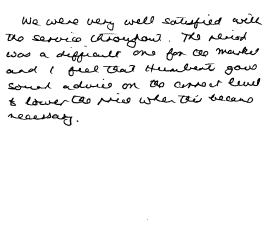 We were very well satisfied with
the service throughout. The period
was a difficult one for the market
and I feel that Humbert gave
sound advice on the correct level
& lower the price when this became
necessary.